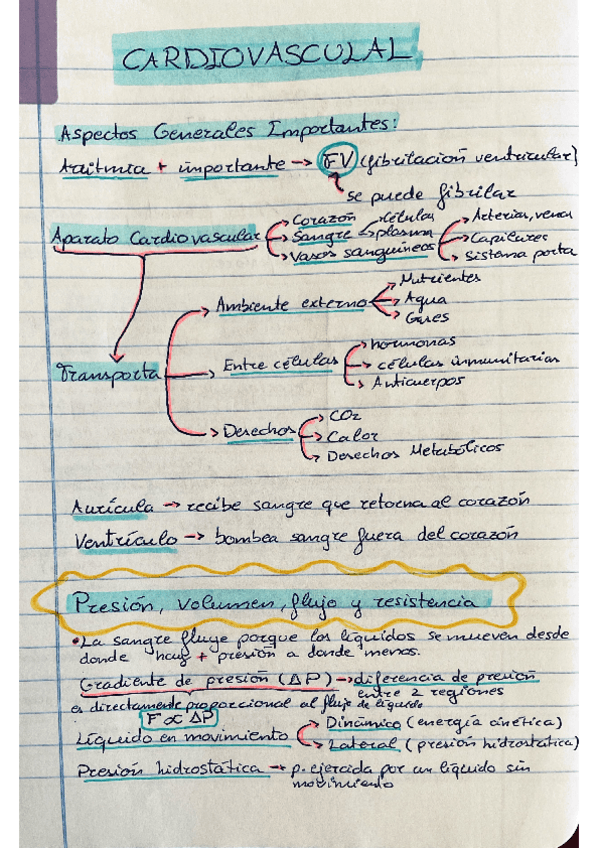 CARDIOVASCULAL
Aspectos Generales Importantes:
Aritmia + importante → FV (fibrilación ventricular)
se puede fibrilar
Aparato Cardiovascular
Corazón
Sangre → células
→ plasma
Vasos sanguíneos → Arterias, venas
→ Capilares
→ Sistema porta
Transporta
Ambiente externo → Nutrientes
→ Agua
→ Gases
Entre células → hormonas
→ células inmunitarias
→ Anticuerpos
Desechos → CO2
→ Calor
→ Desechos Metabólicos
Aurícula → recibe sangre que retorna al corazón
Ventrículo → bombea sangre fuera del corazón
Presión, volumen, flujo y resistencia
• La sangre fluye porque los líquidos se mueven desde
donde hay + presión a donde menos.
Gradiente de presión (ΔP) → diferencia de presión
entre 2 regiones
es directamente proporcional al flujo de líquido
F ∝ ΔP
Líquido en movimiento → Dinámico (energía cinética)
→ Lateral (presión hidrostática)
Presión hidrostática → p. ejercida por un líquido sin
movimiento